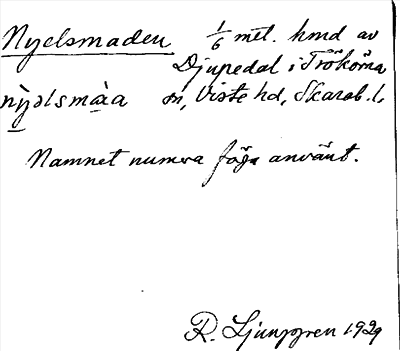 Nyelsmaden 1/6 mil. hmd av
Djupedal i Trökörna
nỳəlsmàa sn, Viste hd, Skarab. l,
Namnet numera föga använt.
R. Ljunggren 1929